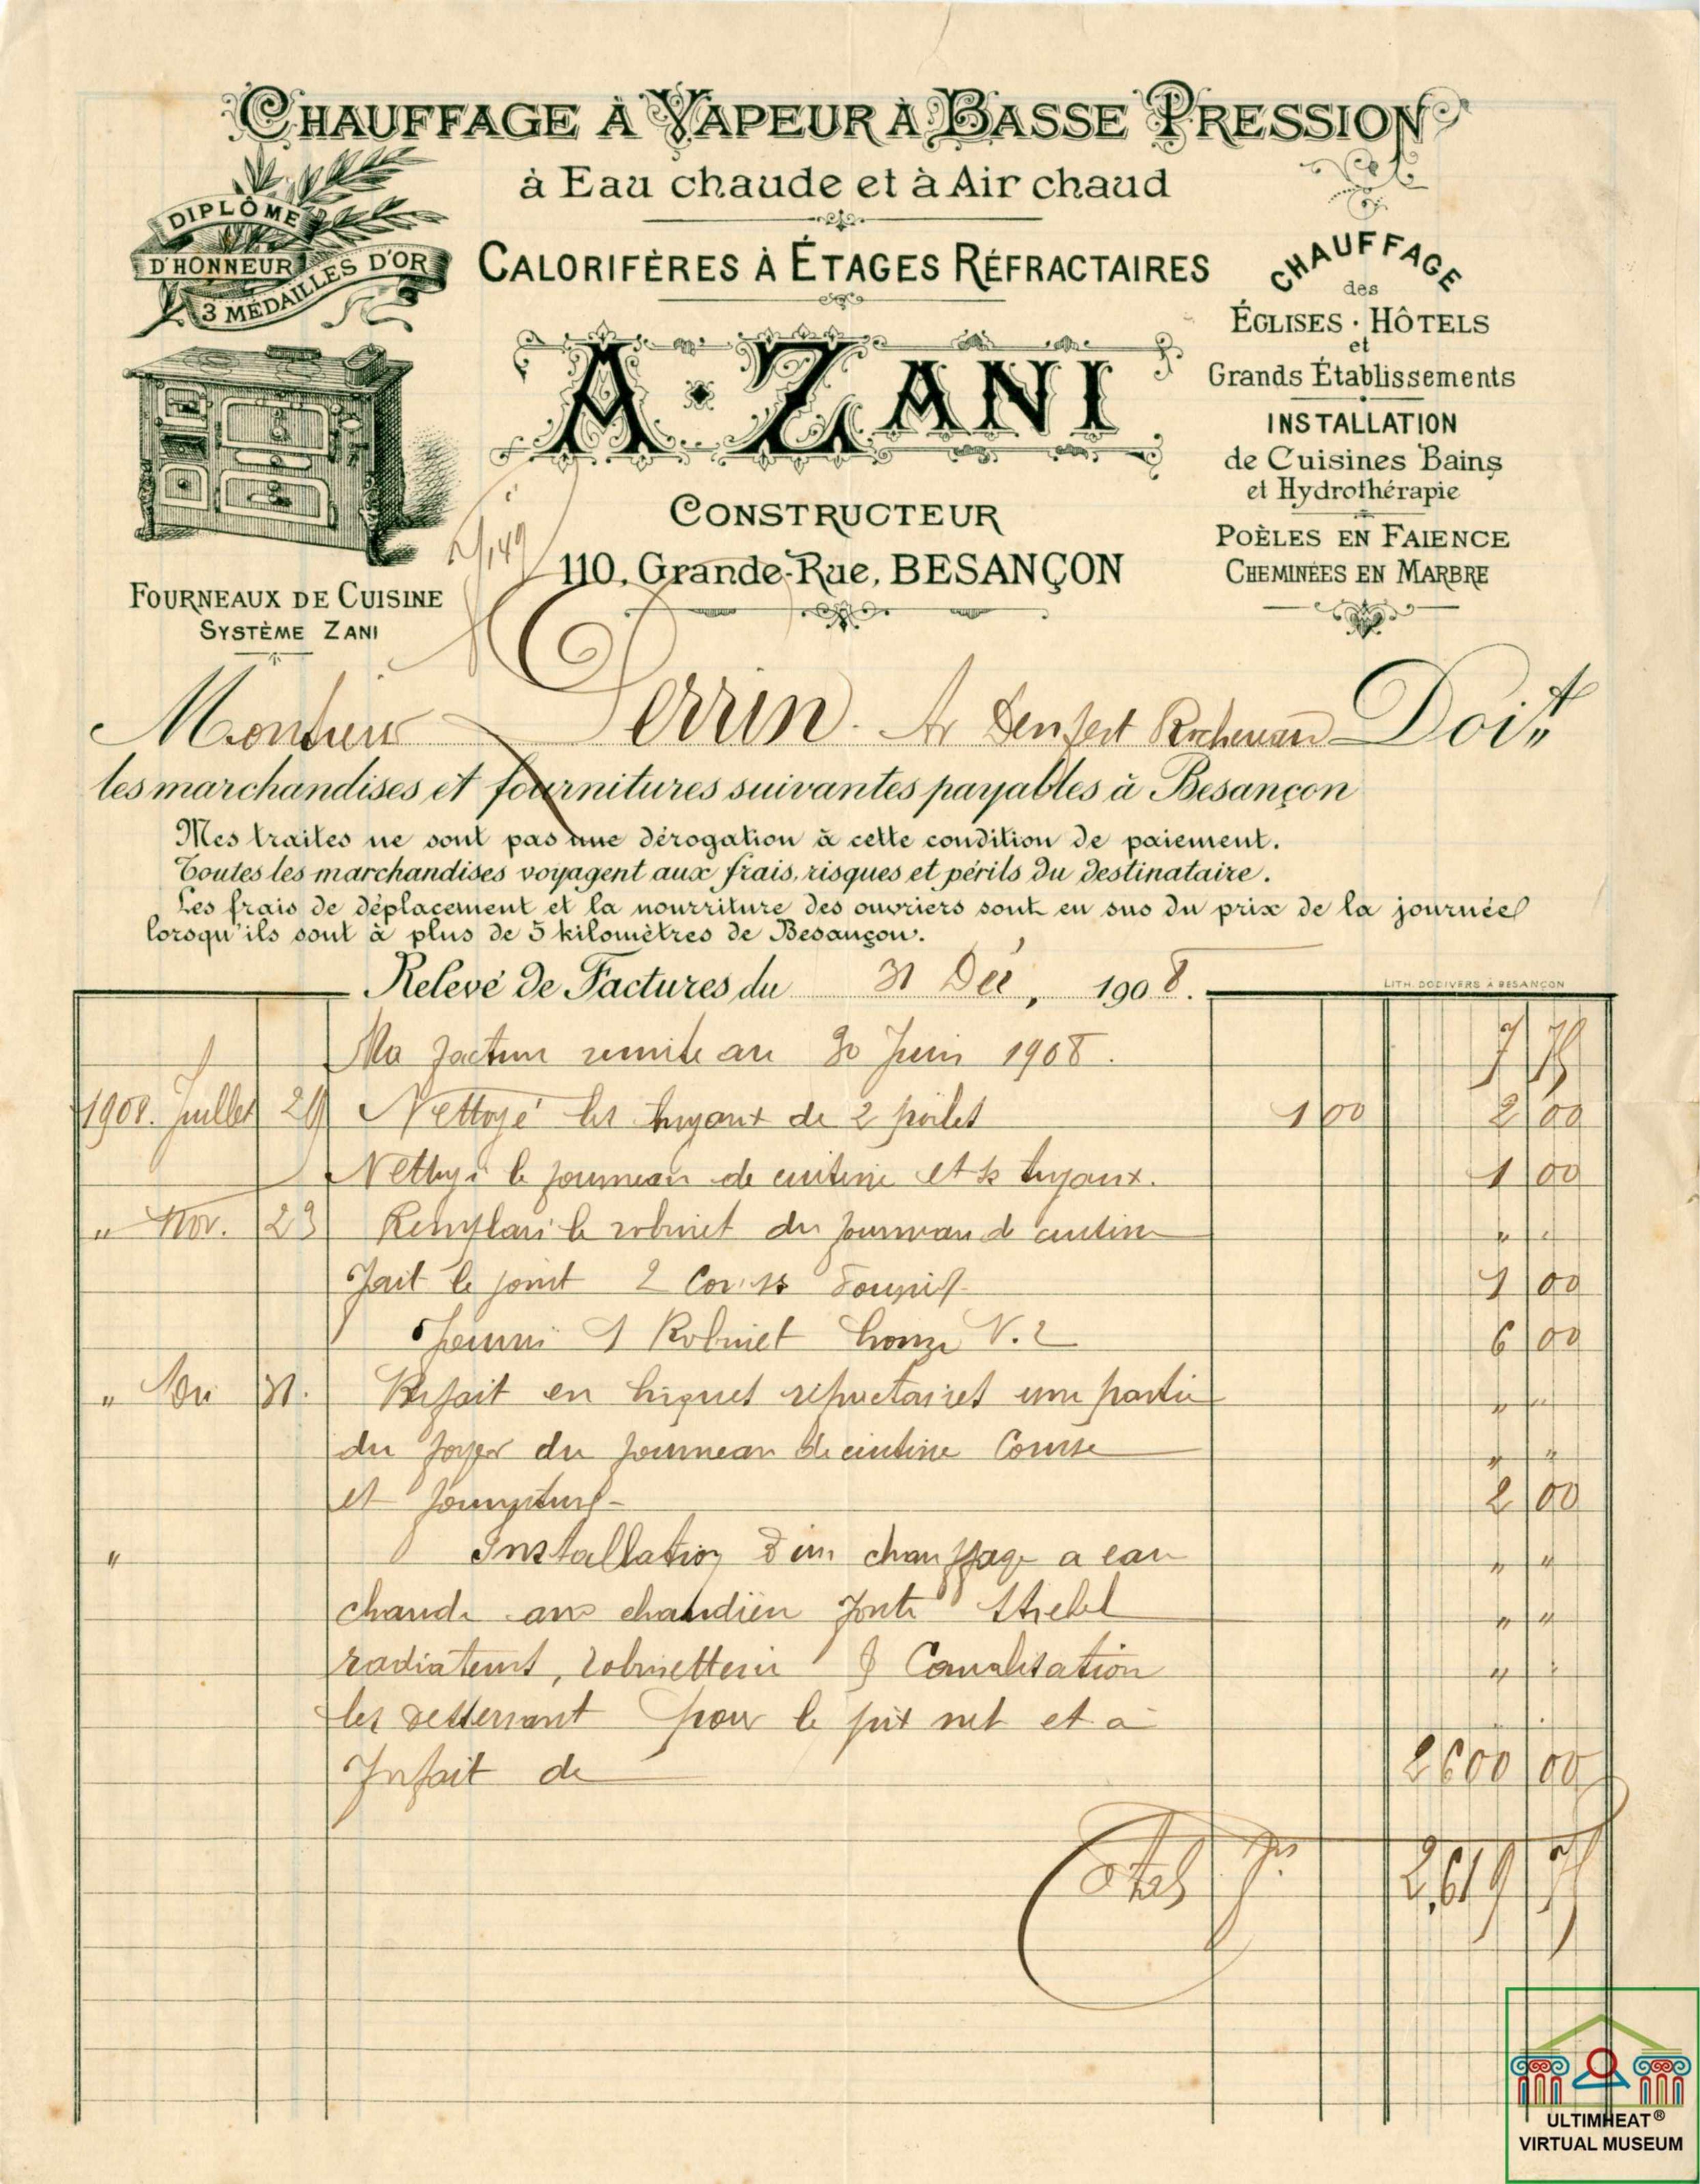 CHAUFFAGE À VAPEUR À BASSE PRESSION
à Eau chaude et à Air chaud
DIPLÔME
D'HONNEUR
3 MÉDAILLES D'OR
CALORIFÈRES À ÉTAGES RÉFRACTAIRES
A. ZANI
CONSTRUCTEUR
110, Grande-Rue, BESANÇON
FOURNEAUX DE CUISINE
SYSTÈME ZANI
CHAUFFAGE
des
ÉGLISES · HÔTELS
et
Grands Établissements
INSTALLATION
de Cuisines Bains
et Hydrothérapie
POÈLES EN FAIENCE
CHEMINÉES EN MARBRE
Monsieur Perrin. Av Denfert Rochereau Doit
les marchandises et fournitures suivantes payables à Besançon
Mes traites ne sont pas une dérogation à cette condition de paiement.
Toutes les marchandises voyagent aux frais, risques et périls du destinataire.
Les frais de déplacement et la nourriture des ouvriers sont en sus du prix de la journée
lorsqu'ils sont à plus de 5 kilomètres de Besançon.
Relevé de Factures du 31 Déc, 1908.
LITH. DODIVERS À BESANÇON
Ma facture remise au 30 Juin 1908. 7 75
1908. Juillet 29 Nettoyé les tuyaux de 2 poêles 1 00 2 00
Nettoyé le fourneau de cuisine et ls tuyaux. 1 00
" Nov. 23 Remplacé le robinet du fourneau d cuisine " "
fait le joint 2 Fournit 1 00
Fourni 1 Robinet bronze N. 2 6 00
" Déc 31. Refait en briques réfractaires une partie " "
du foyer du fourneau de cuisine Course " "
et fournitures 2 00
" Installation d'un chauffage a eau " "
chaude avec chaudière fonte Strebel " "
radiateurs, robinetterie & Canalisation " "
les desservant pour le prix net et à " "
forfait de 2600 00
Total frs 2,619 75
ULTIMHEAT®
VIRTUAL MUSEUM